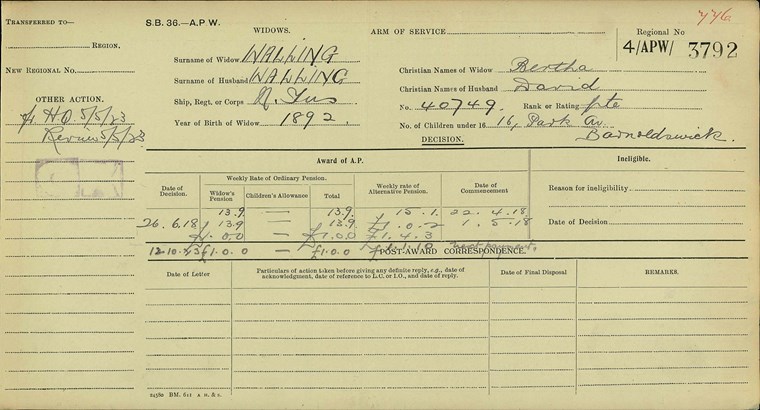 TRANSFERRED TO—
REGION.
NEW REGIONAL NO.
OTHER ACTION.
H.O. 5/5/23
Review 5/5/23
S.B. 36.—A.P.W.
WIDOWS.
Surname of Widow WALLING
Surname of Husband WALLING
Ship, Regt., or Corps N. Fus
Year of Birth of Widow 1892.
ARM OF SERVICE
776
Regional No
4/APW/ 3792
Christian Names of Widow Bertha
Christian Names of Husband David
No. 40749. Rank or Rating Pte
No. of Children under 16 16, Park Av.
Barnoldswick.
DECISION.
Award of A.P.
Ineligible.
Date of Decision.
Weekly Rate of Ordinary Pension.
Widow's Pension
Children's Allowance
Total
Weekly rate of Alternative Pension.
Date of Commencement
Reason for ineligibility
Date of Decision.
13.9 — 13.9 15.1. 22.4.18
26.6.18 13.9 — 13.9 £1.0.2 1.5.18
£1.0.0 — £1.0.0 £1.4.3
£1.0.0 — £1.0.0 next payment.
POST-AWARD CORRESPONDENCE.
Date of Letter
Particulars of action taken before giving any definite reply, e.g., date of acknowledgment, date of reference to L.C. or I.O., and date of reply.
Date of Final Disposal
REMARKS.
24580 BM. 621 A H. & S.